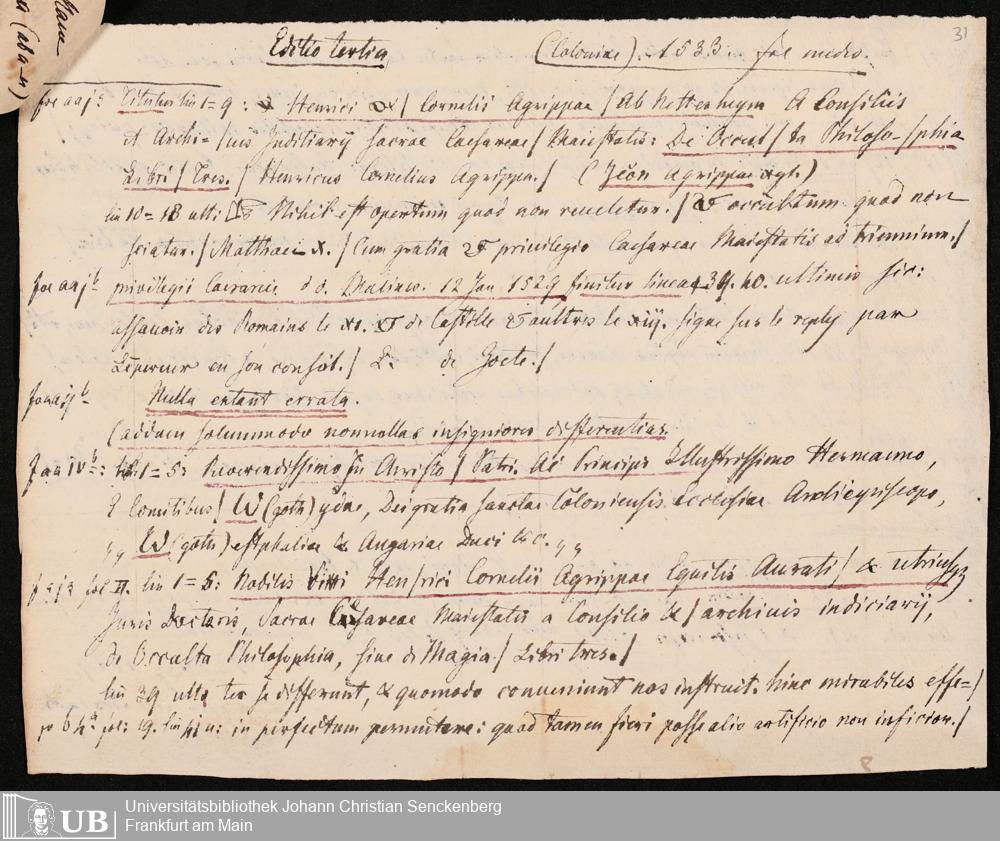 31
Editio tertia (Coloniae). 1533. fol medio.
fol aaj a Titulus lin 1=9: Henrici / Cornelii Agrippae / Ab Nettesheym A Consiliis
et Archi=/uis Inditiarij sacrae Caesareae / Maiestatis: De Occul/ta Philoso-/phia
Libri / Tres. / Henricus Cornelius Agrippa. / (Icon Agrippae xyl.)
lin 10=18 ulti Nihil est opertum quod non reueletur. / & occultum quod non
sciatur. / Matthaei X. / Cum gratia & priuilegio Caesareae Maiestatis ad triennium. /
fol aaj b privilegii d d. Malines. 12 Jan 1529 finitur linea 39. 40. ultimis sic:
assauoir des Romains le xi. & de Castille & aultres le xiij. signe sus le reply par
Lepereur en son consil. / de Zoete. /
Nulla extant errata.
(addam solummodo nonnullas insigniores differentias.
f aa iv b: lin 1=5: Reverendissimo in Christo / Patri Ac Principi Illustrissimo Hermanno,
E Comitibus / W (goth) ydae, Dei gratia sanctae Coloniensis Ecclesiae Archiepiscopo,
W (goth) estphaliae & Angariae Duci &c.
fol II. lin 1=5: Nobilis Viri Hen/rici Cornelii Agrippae Equitis Aurati / & utriusq3
Juris Doctoris, Sacrae Caesareae Maiestatis a Consilio & / archiuis indiciarij,
de Occulta Philosophia, siue de Magia / Libri tres. /
lin 39 ulti ter se differunt, & quomodo conueniunt nos instruit. hinc mirabiles effe=/
lin in perfectum permutare: quod tamen fieri posse alio artificio non inficior. /
UB
Universitätsbibliothek Johann Christian Senckenberg
Frankfurt am Main